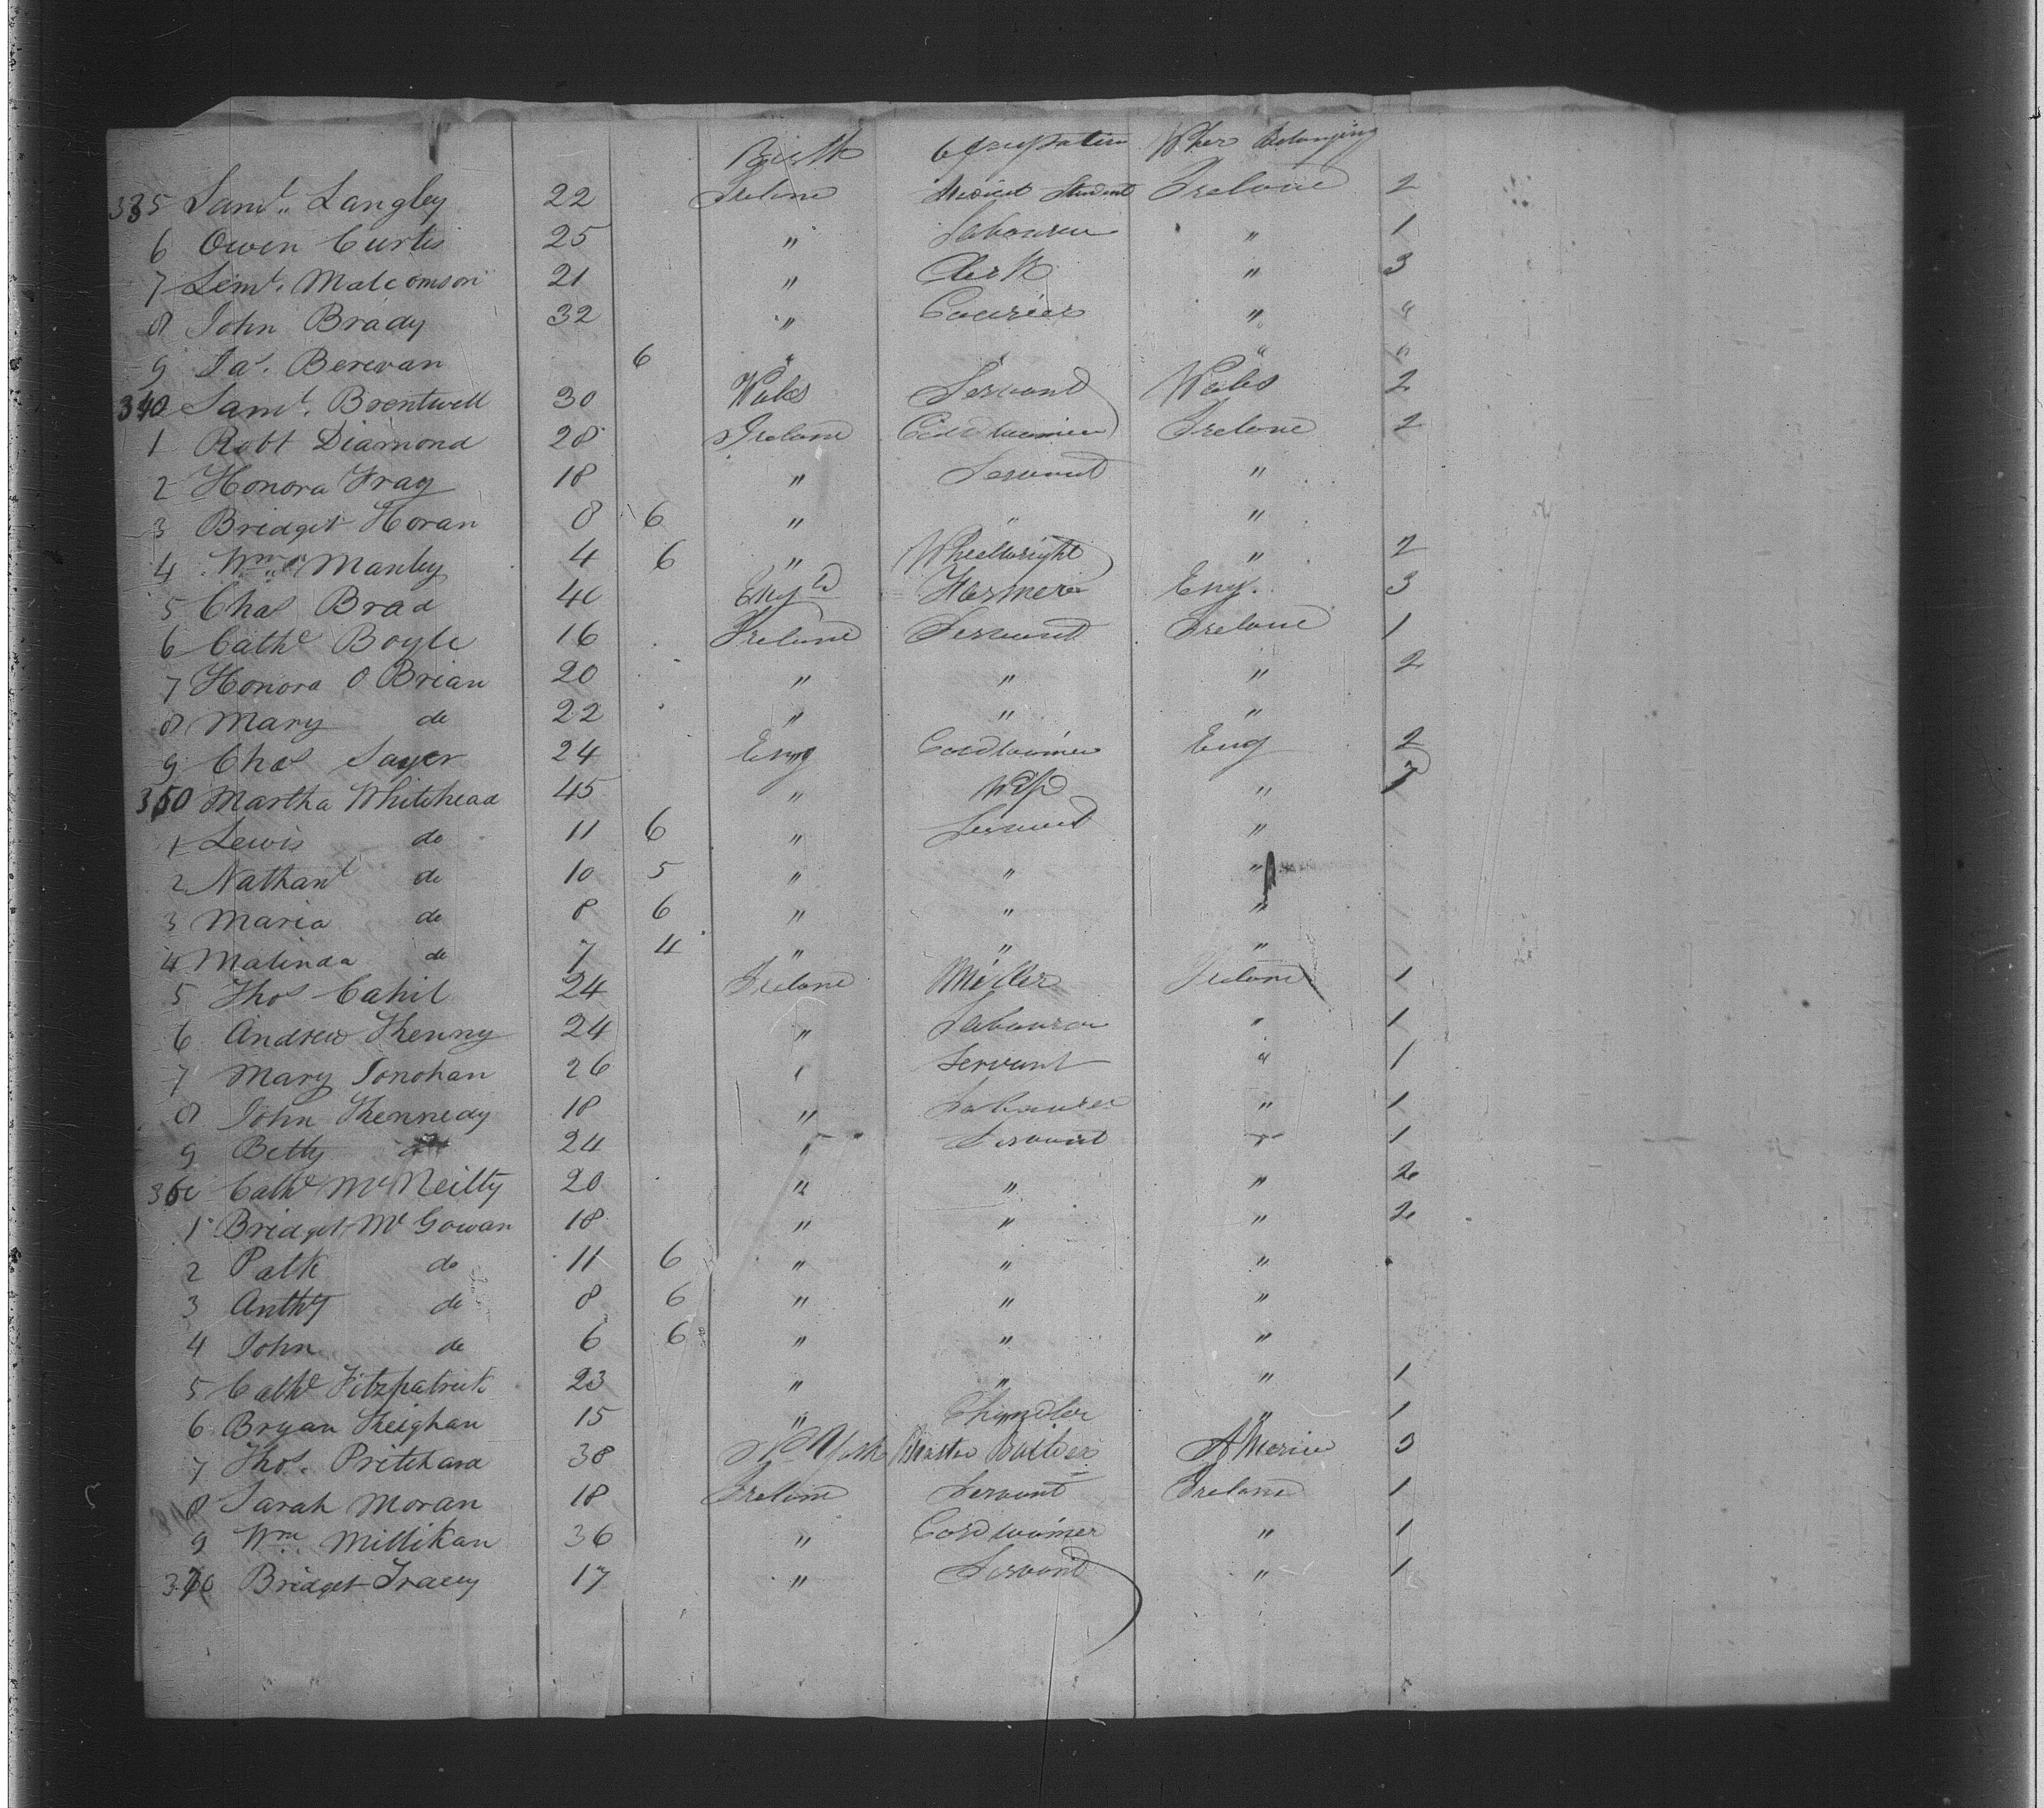 Birth Occupation Wher Belonging
335 Saml. Langley 22 Ireland Medical Student Ireland 2
6 Owen Curtis 25 " Labourer " 1
7 Leml. Malcomson 21 " Clerk " 3
8 John Brady 32 " Courier " "
9 Jas. Berevan 6 " " "
340 Saml. Brentwell 30 Wales Servant Wales 2
1 Robt Diamond 28 Ireland Cordwainer Ireland 2
2 Honora 18 " Servant "
3 Bridget Horan 8 6 " " "
4 Wm Manley 4 6 " Wheelwright " 2
5 Chas Brad 40 Engd Farmer Eng. 3
6 Cathe Boyle 16 Ireland Servant Ireland 1
7 Honora O Brian 20 " " " 2
8 Mary do 22 " " "
9 Chas Sayer 24 Eng Cordwainer Eng 2
350 Martha Whitehead 45 " " 7
1 Lewis do 11 6 " Servant "
2 Nathanl do 10 5 " " "
3 Maria do 8 6 " " "
4 Malinda do 7 4 " " "
5 Thos Cahil 24 Ireland Miller Ireland 1
6 Andrew Kenny 24 " Labourer " 1
7 Mary Donohan 26 " Servant " 1
8 John Kennedy 18 " Labourer " 1
9 Betty do 24 " Servant " 1
360 Cathe McNeilty 20 " " " 2
1 Bridget McGowan 18 " " " 2
2 Patk do 11 6 " " "
3 Anthy do 8 6 " " "
4 John do 6 6 " " "
5 Cathe Fitzpatrick 23 " " " 1
6 Bryan Keighan 15 " Chandler " 1
7 Thos. Pritchard 38 N York Master Builder America 3
8 Sarah Moran 18 Ireland Servant Ireland 1
9 Wm Millikan 36 " Cordwainer " 1
370 Bridget Tracey 17 " Servant " 1